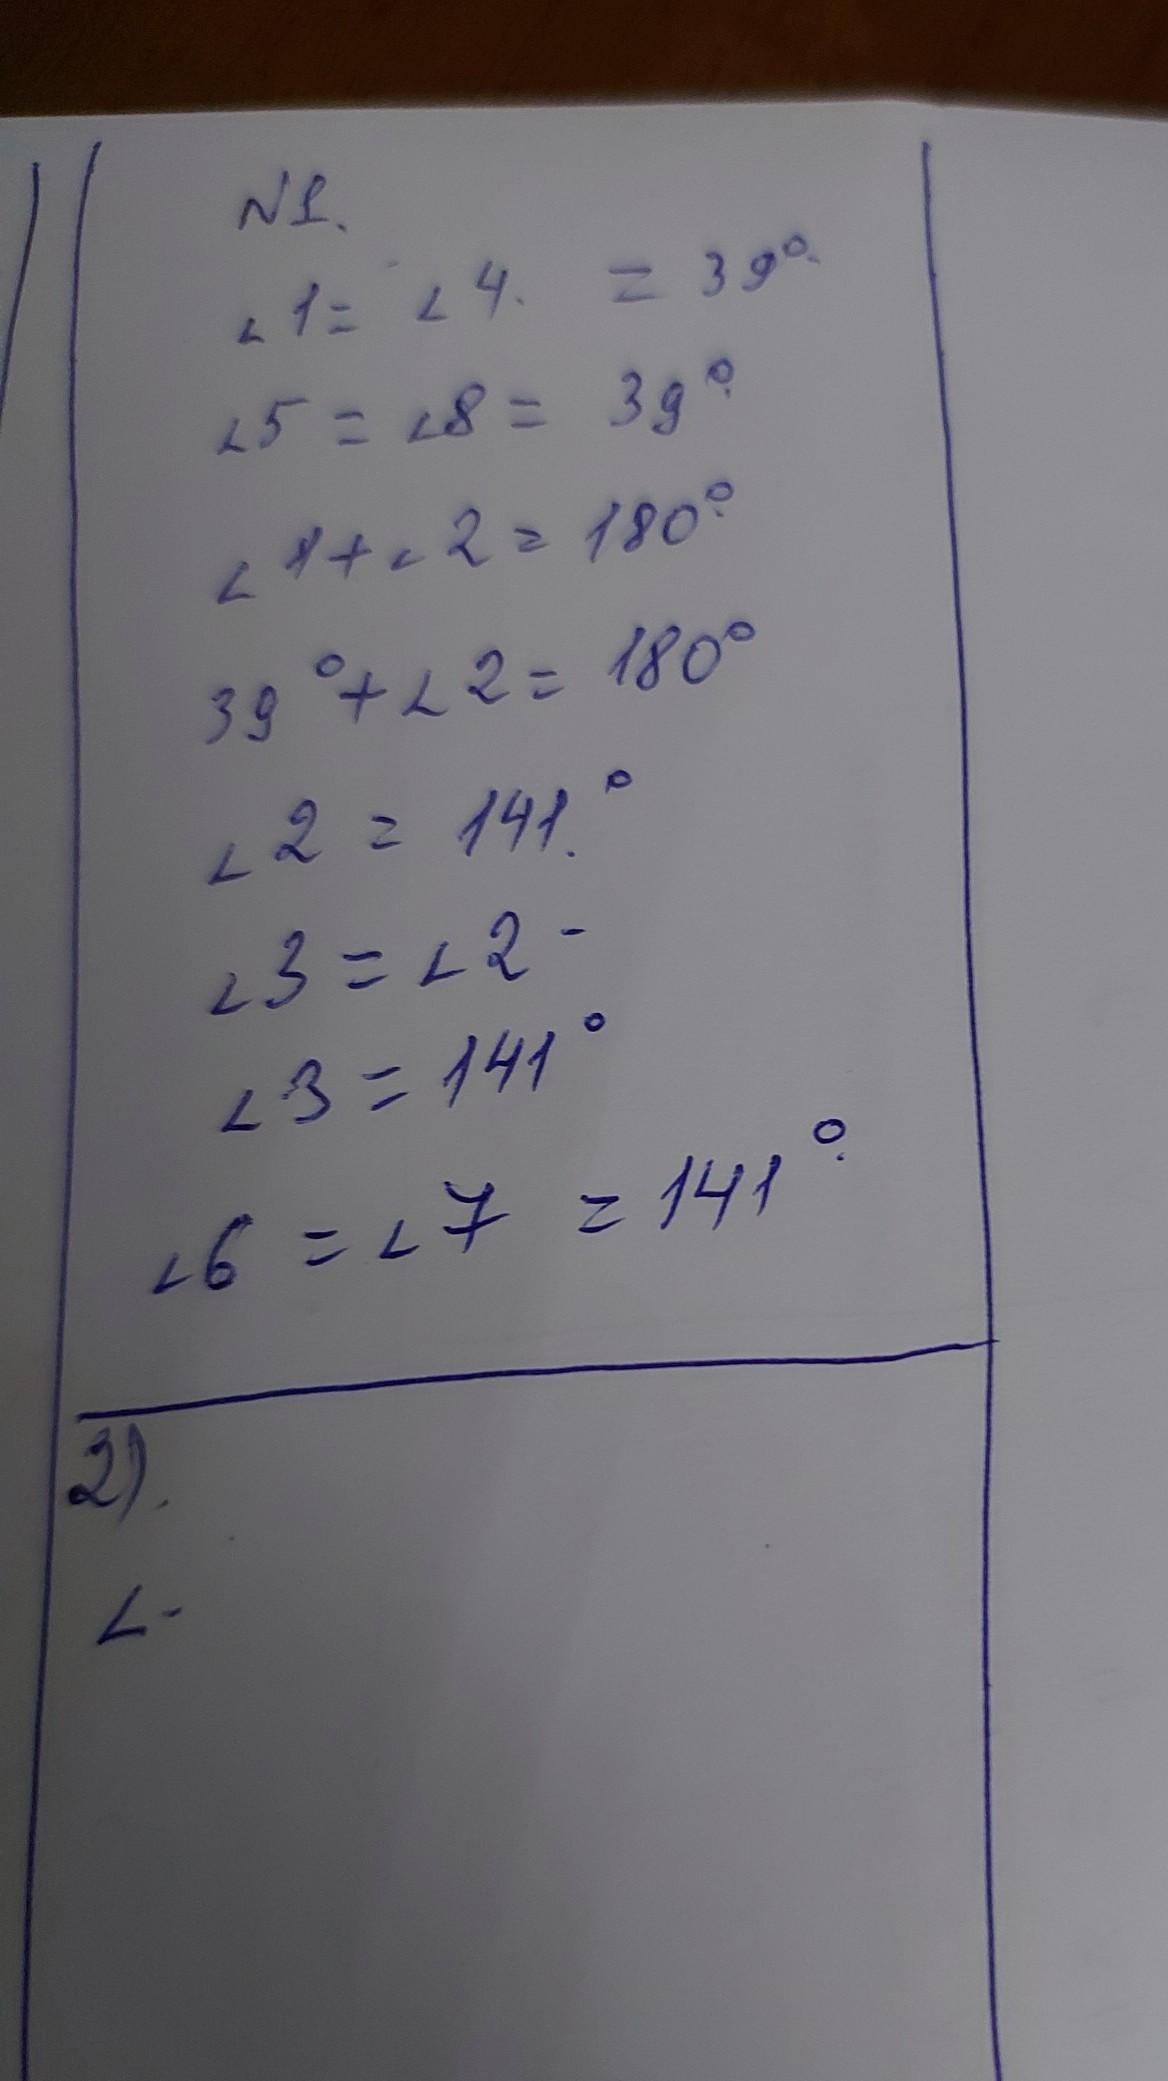 N1.
∠1= ∠4. = 39°.
∠5 = ∠8 = 39°.
∠1+∠2 = 180°.
39°+∠2 = 180°
∠2 = 141.°
∠3 = ∠2 -
∠3 = 141°
∠6 = ∠7 = 141°.
2).
∠-